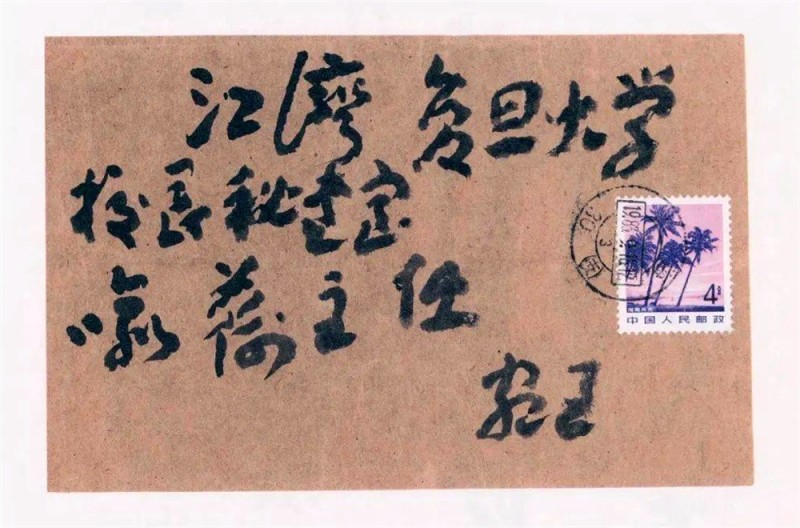 江湾 复旦大学
校长秘书室
喻蘅主任
4分
中国人民邮政